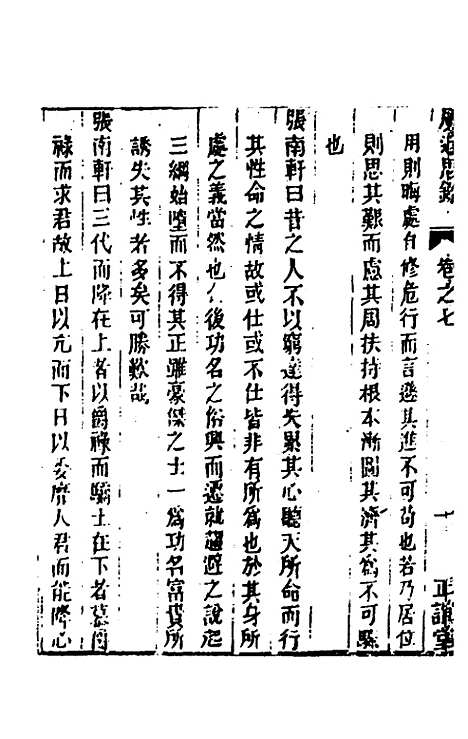 廣近思錄 卷之七 十 正誼堂
用則晦處自修危行而言遜其進不可茍也若乃居位
則思其艱而慮其周扶持根本漸圖其濟其爲不可驟
也
張南軒曰昔之人不以窮達得失累其心聽天所命而行
其性命之情故或仕或不仕皆非有所爲也於其身所
處之義當然也 後功名之俗興而遷就趨避之說起
三綱始墮而不得其正雖豪傑之士一爲功名富貴所
誘失其性者多矣可勝歎哉
張南軒曰三代而降在上者以爵祿而驕士在下者慕爵
祿而求君故上日以亢而下日以委靡人君而能降心